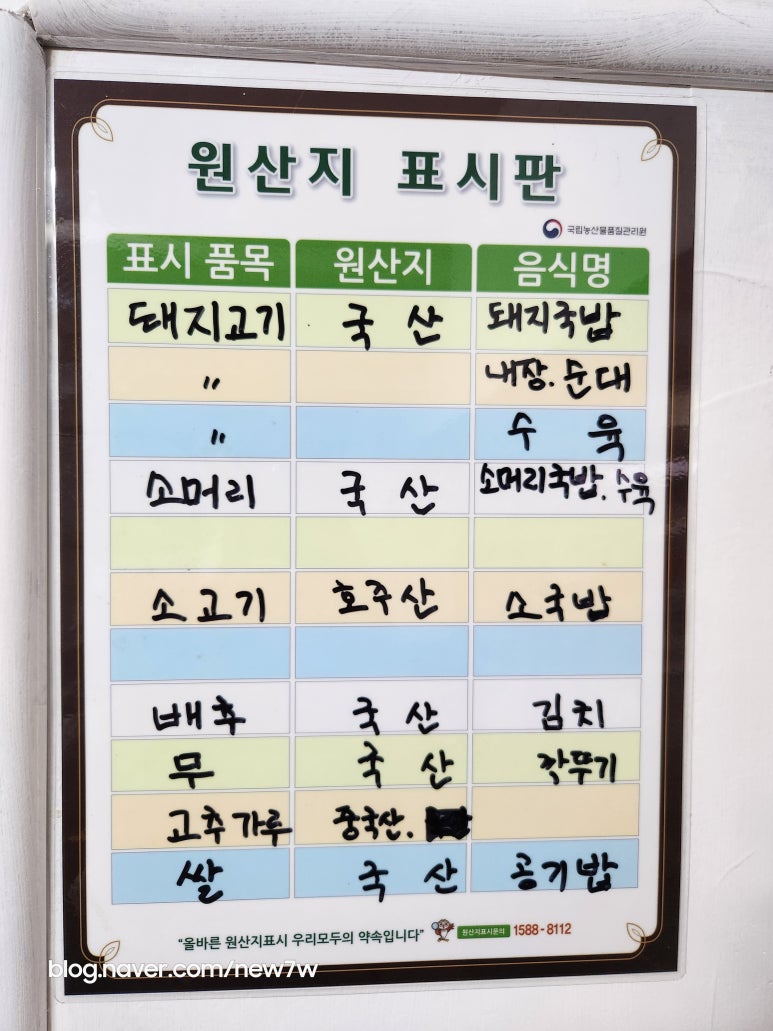 원산지 표시판
국립농산물품질관리원
표시 품목 원산지 음식명
돼지고기 국산 돼지국밥
〃 내장. 순대
〃 수육
소머리 국산 소머리국밥. 수육
소고기 호주산 소국밥
배추 국산 김치
무 국산 깍뚜기
고추가루 중국산.
쌀 국산 공기밥
"올바른 원산지표시 우리모두의 약속입니다" 원산지표시문의 1588-8112
blog.naver.com/new7w